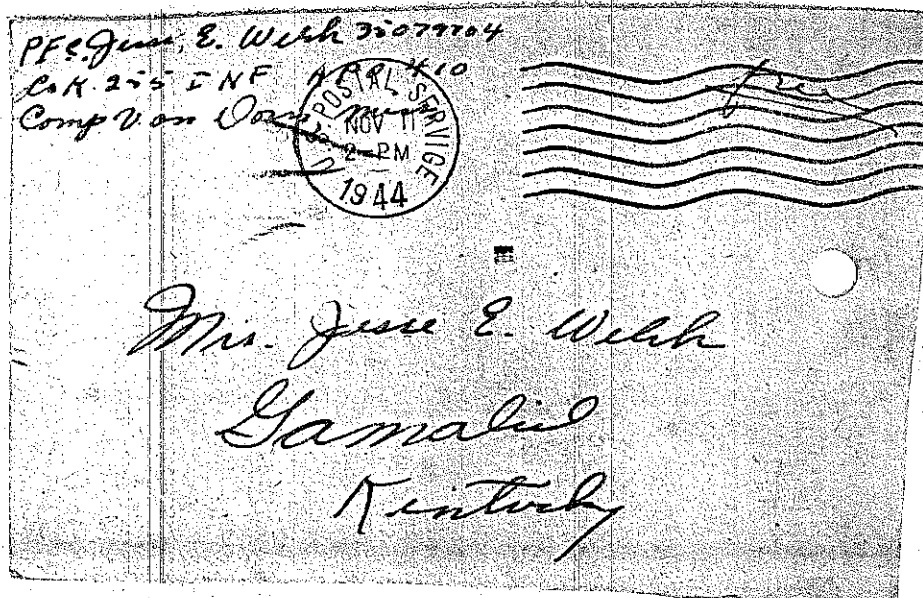 PFC. Jesse, E. Welsh 35079704
Co K. 255 INF APO 410
Camp Van Dorn Miss
U.S. POSTAL SERVICE
NOV 11
2-PM
1944
free
Mrs. Jesse E. Welsh
Gamaliel
Kentucky